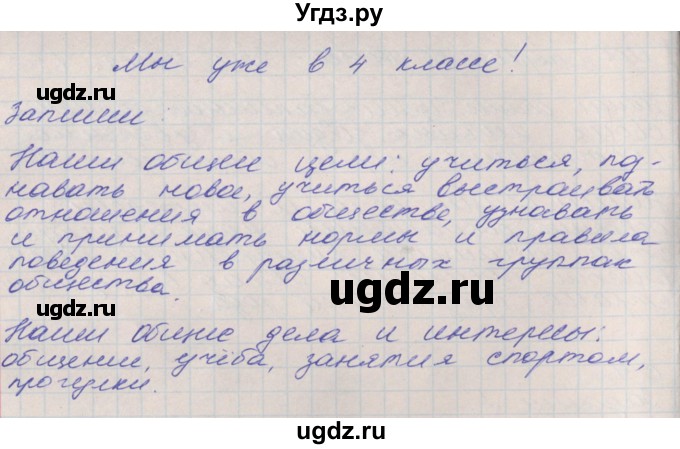 Угдз.ру
Мы уже в 4 классе!
ugdz.ru
ugdz.ru
Запиши.
Наши общие цели: учиться, поз-
навать новое, учиться выстраивать
отношения в обществе, узнавать
и принимать нормы и правила
поведения в различных группах
общества.
ugdz.ru
ugdz.ru
Наши общие дела и интересы:
общение, учёба, занятия спортом,
прогулки.
ugdz.ru
ugdz.ru